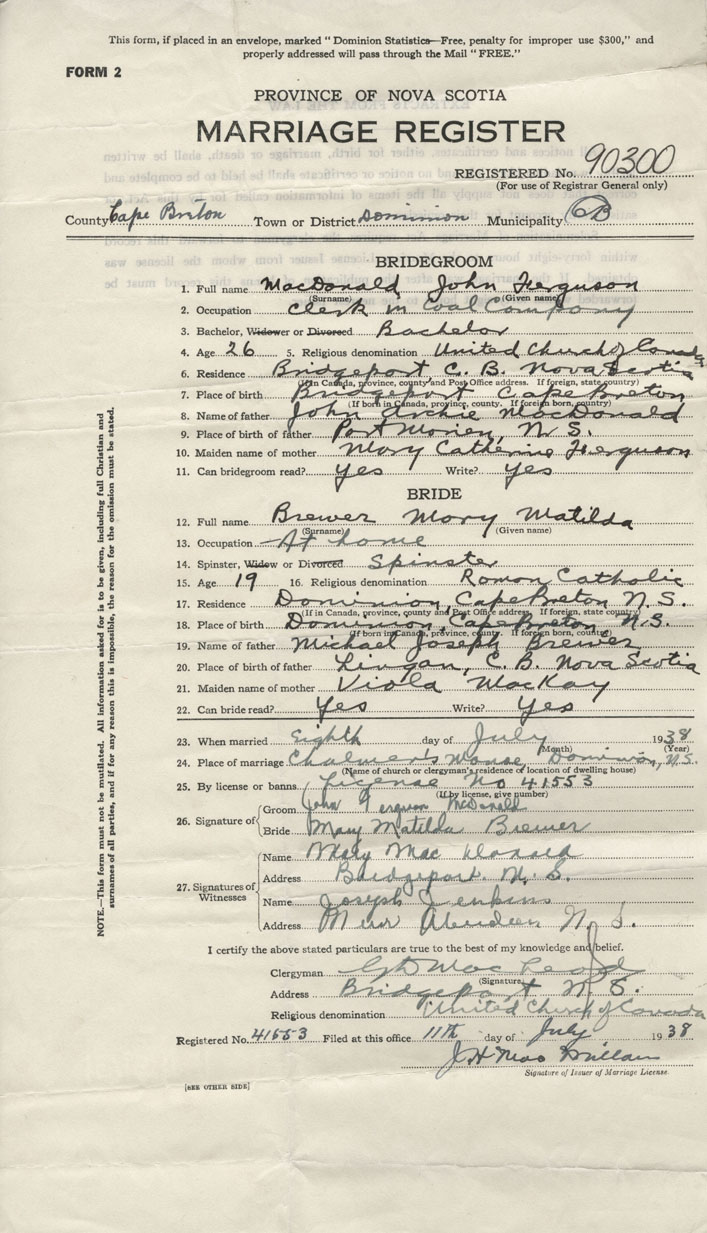 This form, if placed in an envelope, marked "Dominion Statistics—Free, penalty for improper use $300," and
properly addressed will pass through the Mail "FREE."
FORM 2
PROVINCE OF NOVA SCOTIA
MARRIAGE REGISTER
REGISTERED No. 90300
(For use of Registrar General only)
County Cape Breton Town or District Dominion Municipality CB
BRIDEGROOM
1. Full name MacDonald John Ferguson
(Surname) (Given name)
2. Occupation Clerk in Coal Company
3. Bachelor, Widower or Divorced Bachelor
4. Age 26 5. Religious denomination United Church of Canada
6. Residence Bridgeport, C. B. Nova Scotia
(If in Canada, province, county and Post Office address. If foreign, state county)
7. Place of birth Bridgeport Cape Breton
(If born in Canada, province, county. If foreign born, country)
8. Name of father John Archie MacDonald
9. Place of birth of father Port Morien, N. S.
10. Maiden name of mother Mary Catherine Ferguson
11. Can bridegroom read? Yes Write? Yes
BRIDE
12. Full name Brewer Mary Matilda
(Surname) (Given name)
13. Occupation At home
14. Spinster, Widow or Divorced Spinster
15. Age 19 16. Religious denomination Roman Catholic
17. Residence Dominion, Cape Breton N. S.
(If in Canada, province, county and Post Office address. If foreign, state country)
18. Place of birth Dominion, Cape Breton N.S.
(If born in Canada, province, county. If foreign born, country)
19. Name of father Michael Joseph Brewer
20. Place of birth of father Lingan, C. B. Nova Scotia
21. Maiden name of mother Viola MacKay
22. Can bride read? Yes Write? Yes
23. When married Eighth day of July 1938
(Month) (Year)
24. Place of marriage Chalmer's Manse, Dominion, N.S.
(Name of church or clergyman's residence or location of dwelling house)
25. By license or banns License No 41553
(If by license, give number)
26. Signature of
Groom John Ferguson McDonald
Bride Mary Matilda Brewer
27. Signatures of Witnesses
Name Mary MacDonald
Address Bridgeport N. S.
Name Joseph Jenkins
Address New Aberdeen N. S.
I certify the above stated particulars are true to the best of my knowledge and belief.
Clergyman MacLeod
(Signature)
Address Bridgeport N. S.
Religious denomination United Church of Canada
Registered No. 41553 Filed at this office 11th day of July 1938
J H MacMillan
Signature of Issuer of Marriage License.
[SEE OTHER SIDE]
NOTE.—This form must not be mutilated. All information asked for is to be given, including full Christian and
surnames of all parties, and if for any reason this is impossible, the reason for the omission must be stated.